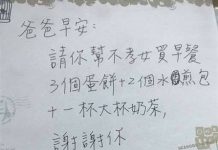 爸爸早安:
請你幫不孝女買早餐
3個蛋餅+2個水煎包
+一杯大杯奶茶,
謝謝你